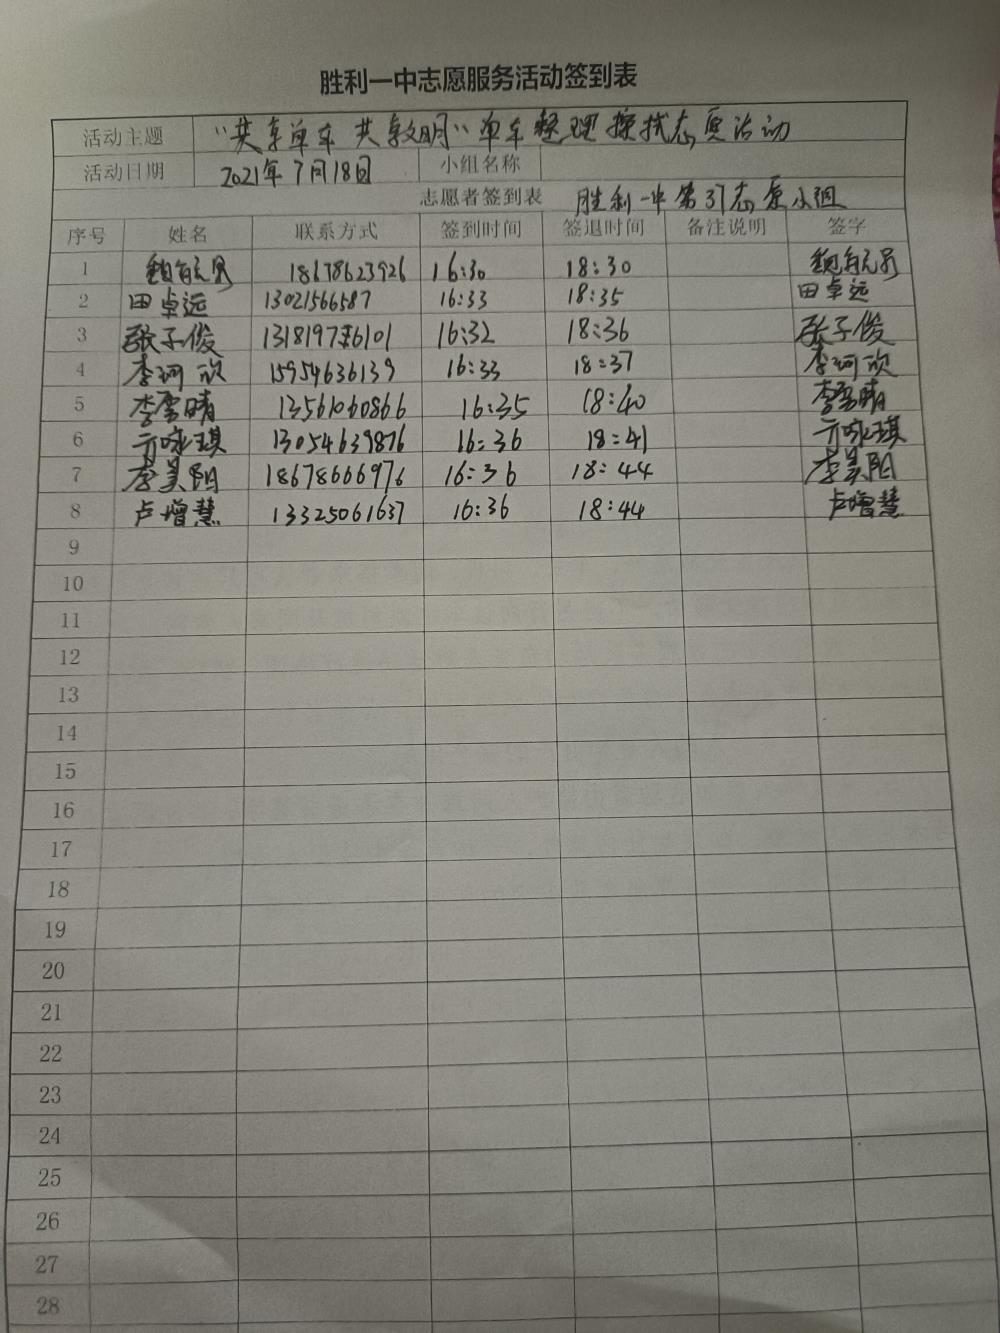 胜利一中志愿服务活动签到表
活动主题 "共享单车 共享文明"单车整理擦拭志愿活动
活动日期 2021年7月18日 小组名称
志愿者签到表 胜利一中第37志愿小组
序号 姓名 联系方式 签到时间 签退时间 备注说明 签字
1 18678623926 16:30 18:30
2 田卓远 13021566587 16:33 18:35 田卓远
3 张子俊 16:32 18:36 张子俊
4 李珂欣 15954636139 16:33 18:37 李珂欣
5 李雪晴 13561060866 16:35 18:40 李雪晴
6 亓咏琪 13054639876 16:36 18:41 亓咏琪
7 李昊阳 18678666976 16:36 18:44 李昊阳
8 卢增慧 13325061637 16:36 18:44 卢增慧
9
10
11
12
13
14
15
16
17
18
19
20
21
22
23
24
25
26
27
28